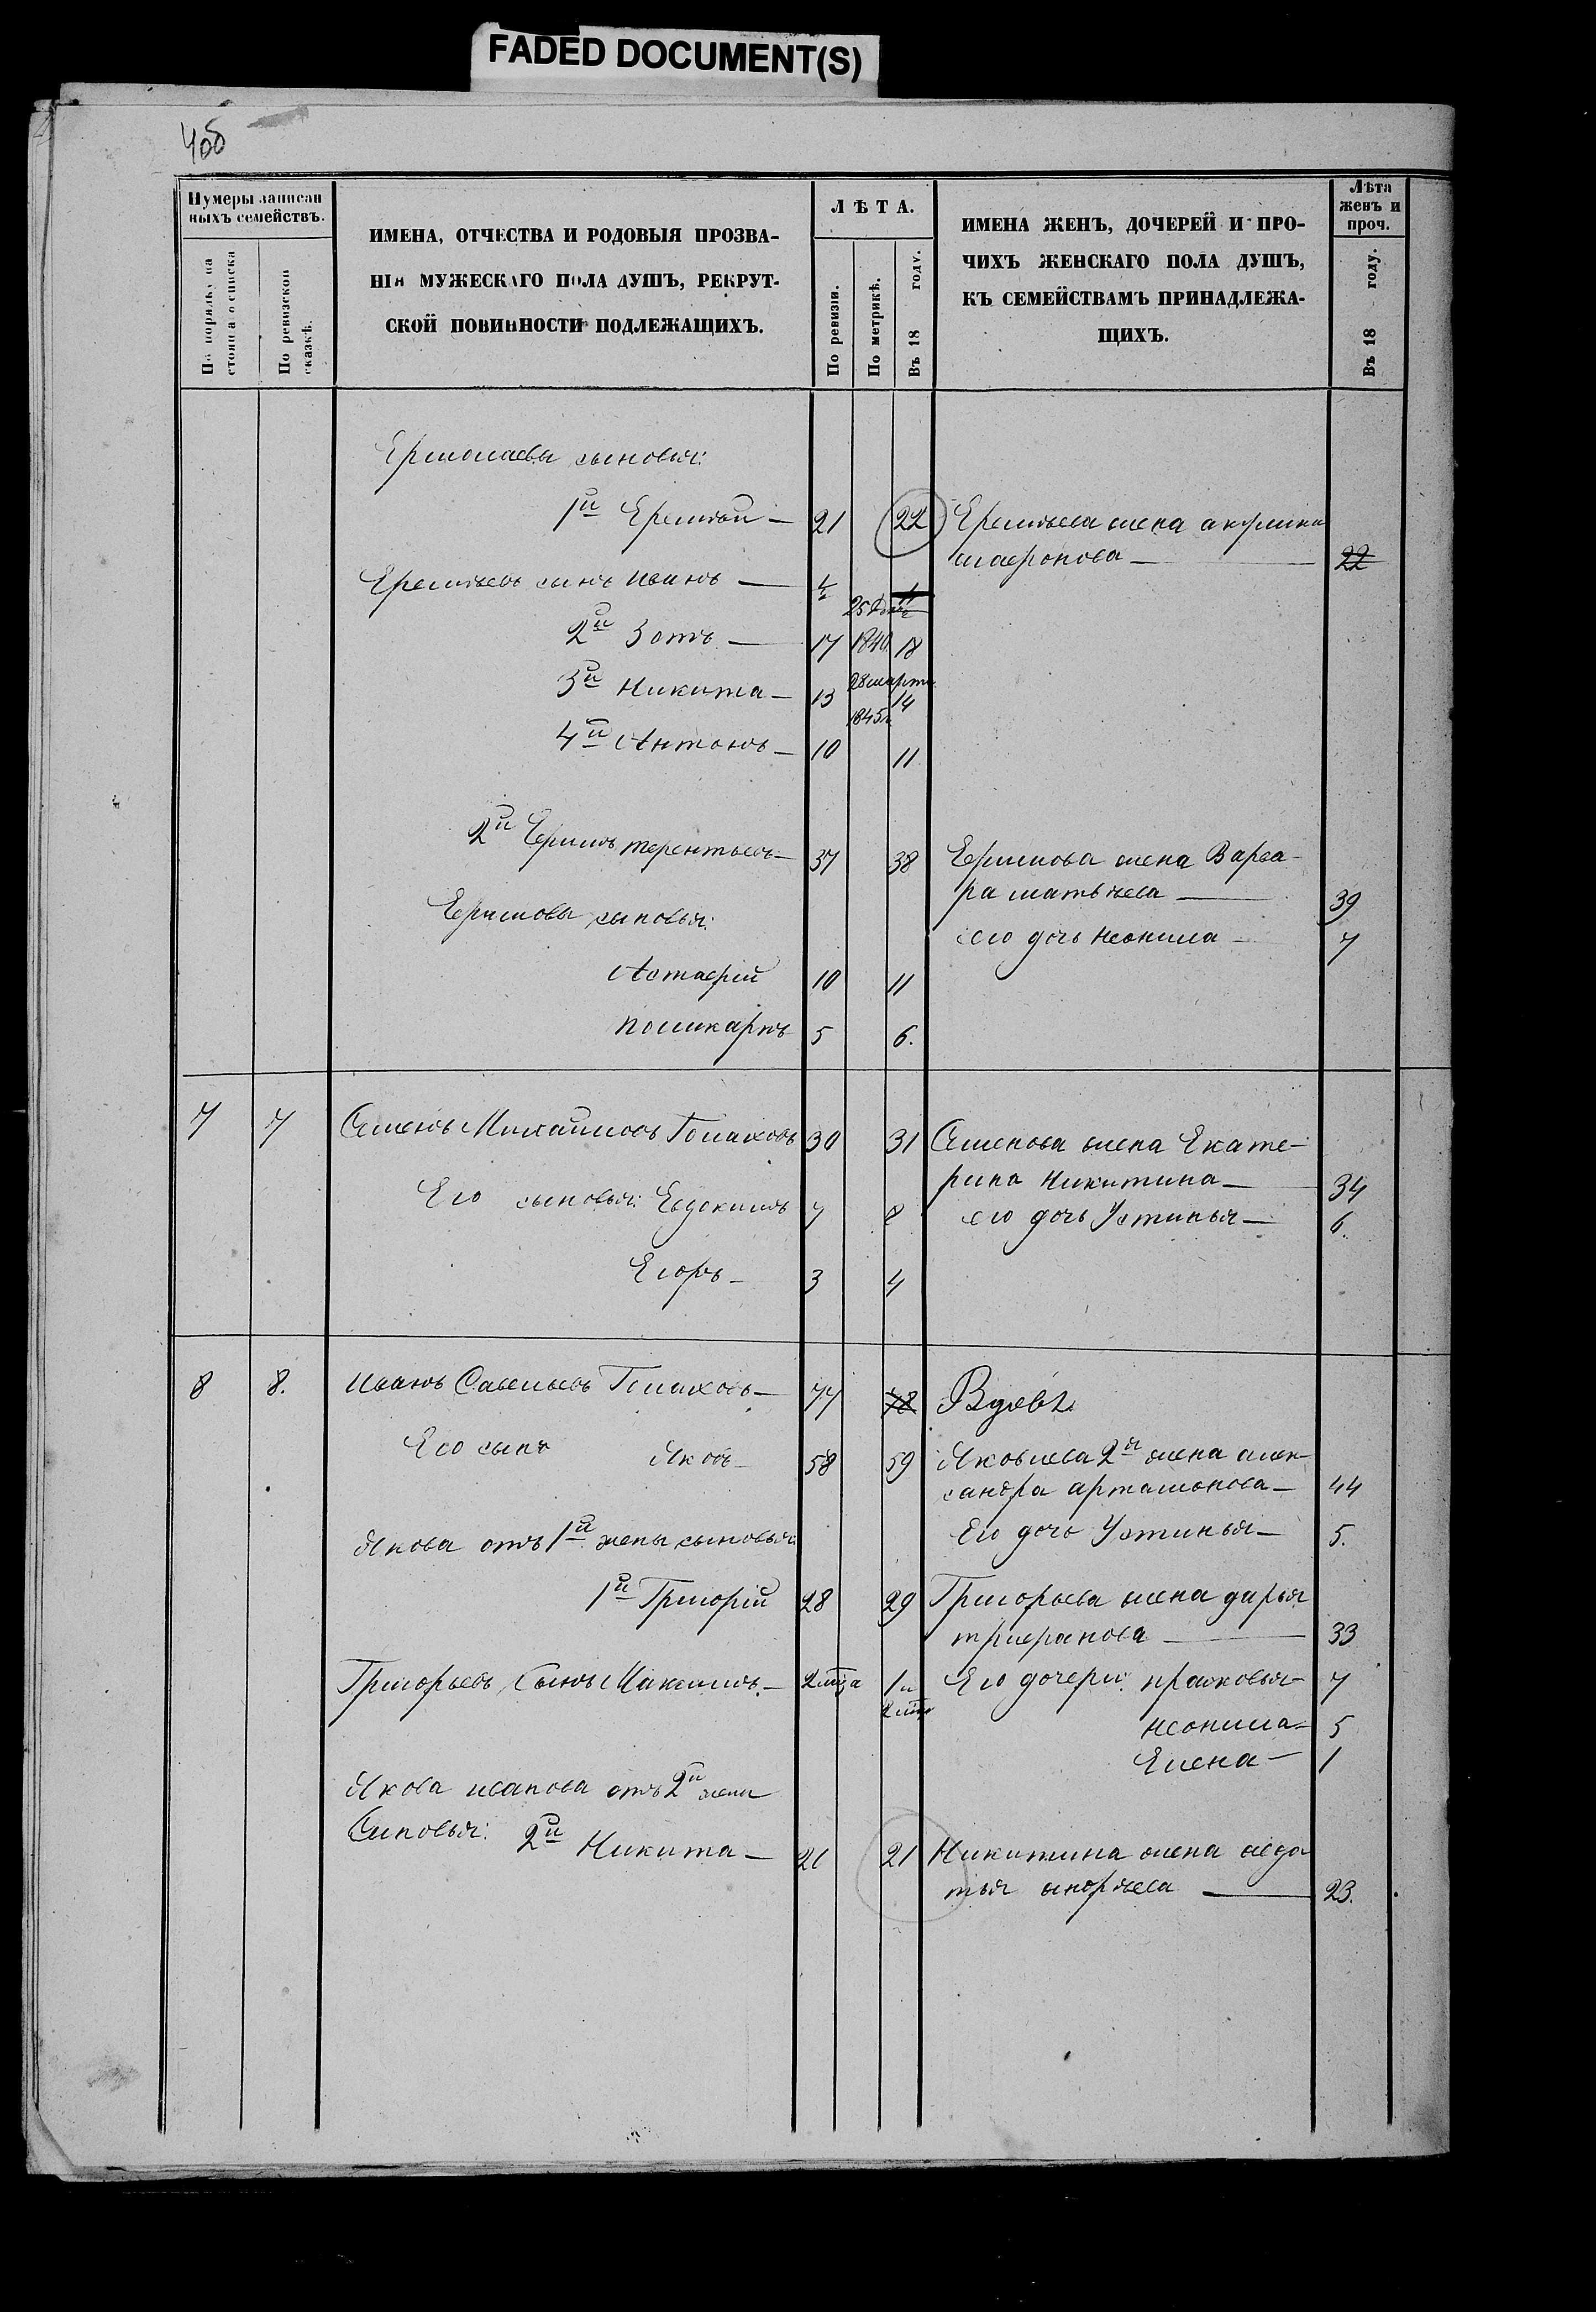 FADED DOCUMENT(S)
406
Нумеры записан
ныхъ семействъ.
По порядку на
стоящаго списка
По ревизской
сказкѣ.
ИМЕНА, ОТЧЕСТВА И РОДОВЫЯ ПРОЗВА-
НІЯ МУЖЕСКАГО ПОЛА ДУШЪ, РЕКРУТ-
СКОЙ ПОВИННОСТИ ПОДЛЕЖАЩИХЪ.
ЛѢТА.
По ревизіи.
По метрикѣ.
Въ 18 году.
ИМЕНА ЖЕНЪ, ДОЧЕРЕЙ И ПРО-
ЧИХЪ ЖЕНСКАГО ПОЛА ДУШЪ,
КЪ СЕМЕЙСТВАМЪ ПРИНАДЛЕЖА-
ЩИХЪ.
Лѣта
женъ и
проч.
Въ 18 году.
Ермолаевы сыновья:
1й Еремѣй — 21 22 Еремѣева жена акулина
22
Еремѣевъ сынъ иванъ —
2й Зотъ — 17 1840 18
3й Никита — 13 28 марта 14
1845г
4й Антонъ — 10 11
2й Ефимъ терентьевъ — 37 38 Ефимова жена Варва-
ра матвѣева — 39
Ефимовы сыновья:
его дочь неонила — 7
Астафій 10 11
поликарпъ 5 6.
7 7 Семенъ Михайловъ 30 31 Семенова жена Екате-
рина Никитина — 34
Его сыновья: Евдокимъ 7 8 его дочь Устинья — 6.
Егоръ — 3 4
8 8. иванъ Савельевъ 77 78 Вдовъ
Его сынъ Яковъ — 58 59 Яковлева 2я жена алек-
сандра артамонова — 44
Его дочь Устинья — 5.
Якова отъ 1й жены сыновья:
1й Григорій 28 29 Григорьева жена дарья
трифонова — 33
Григорьевъ сынъ Максимъ — 2 мца 1 и Его дочери: прасковья — 7
2 мца
неонила — 5
Елена — 1
Якова иванова отъ 2й жены
Сыновья: 2й Никита — 20 21 Никитина жена авдо
тья андрѣева — 23.